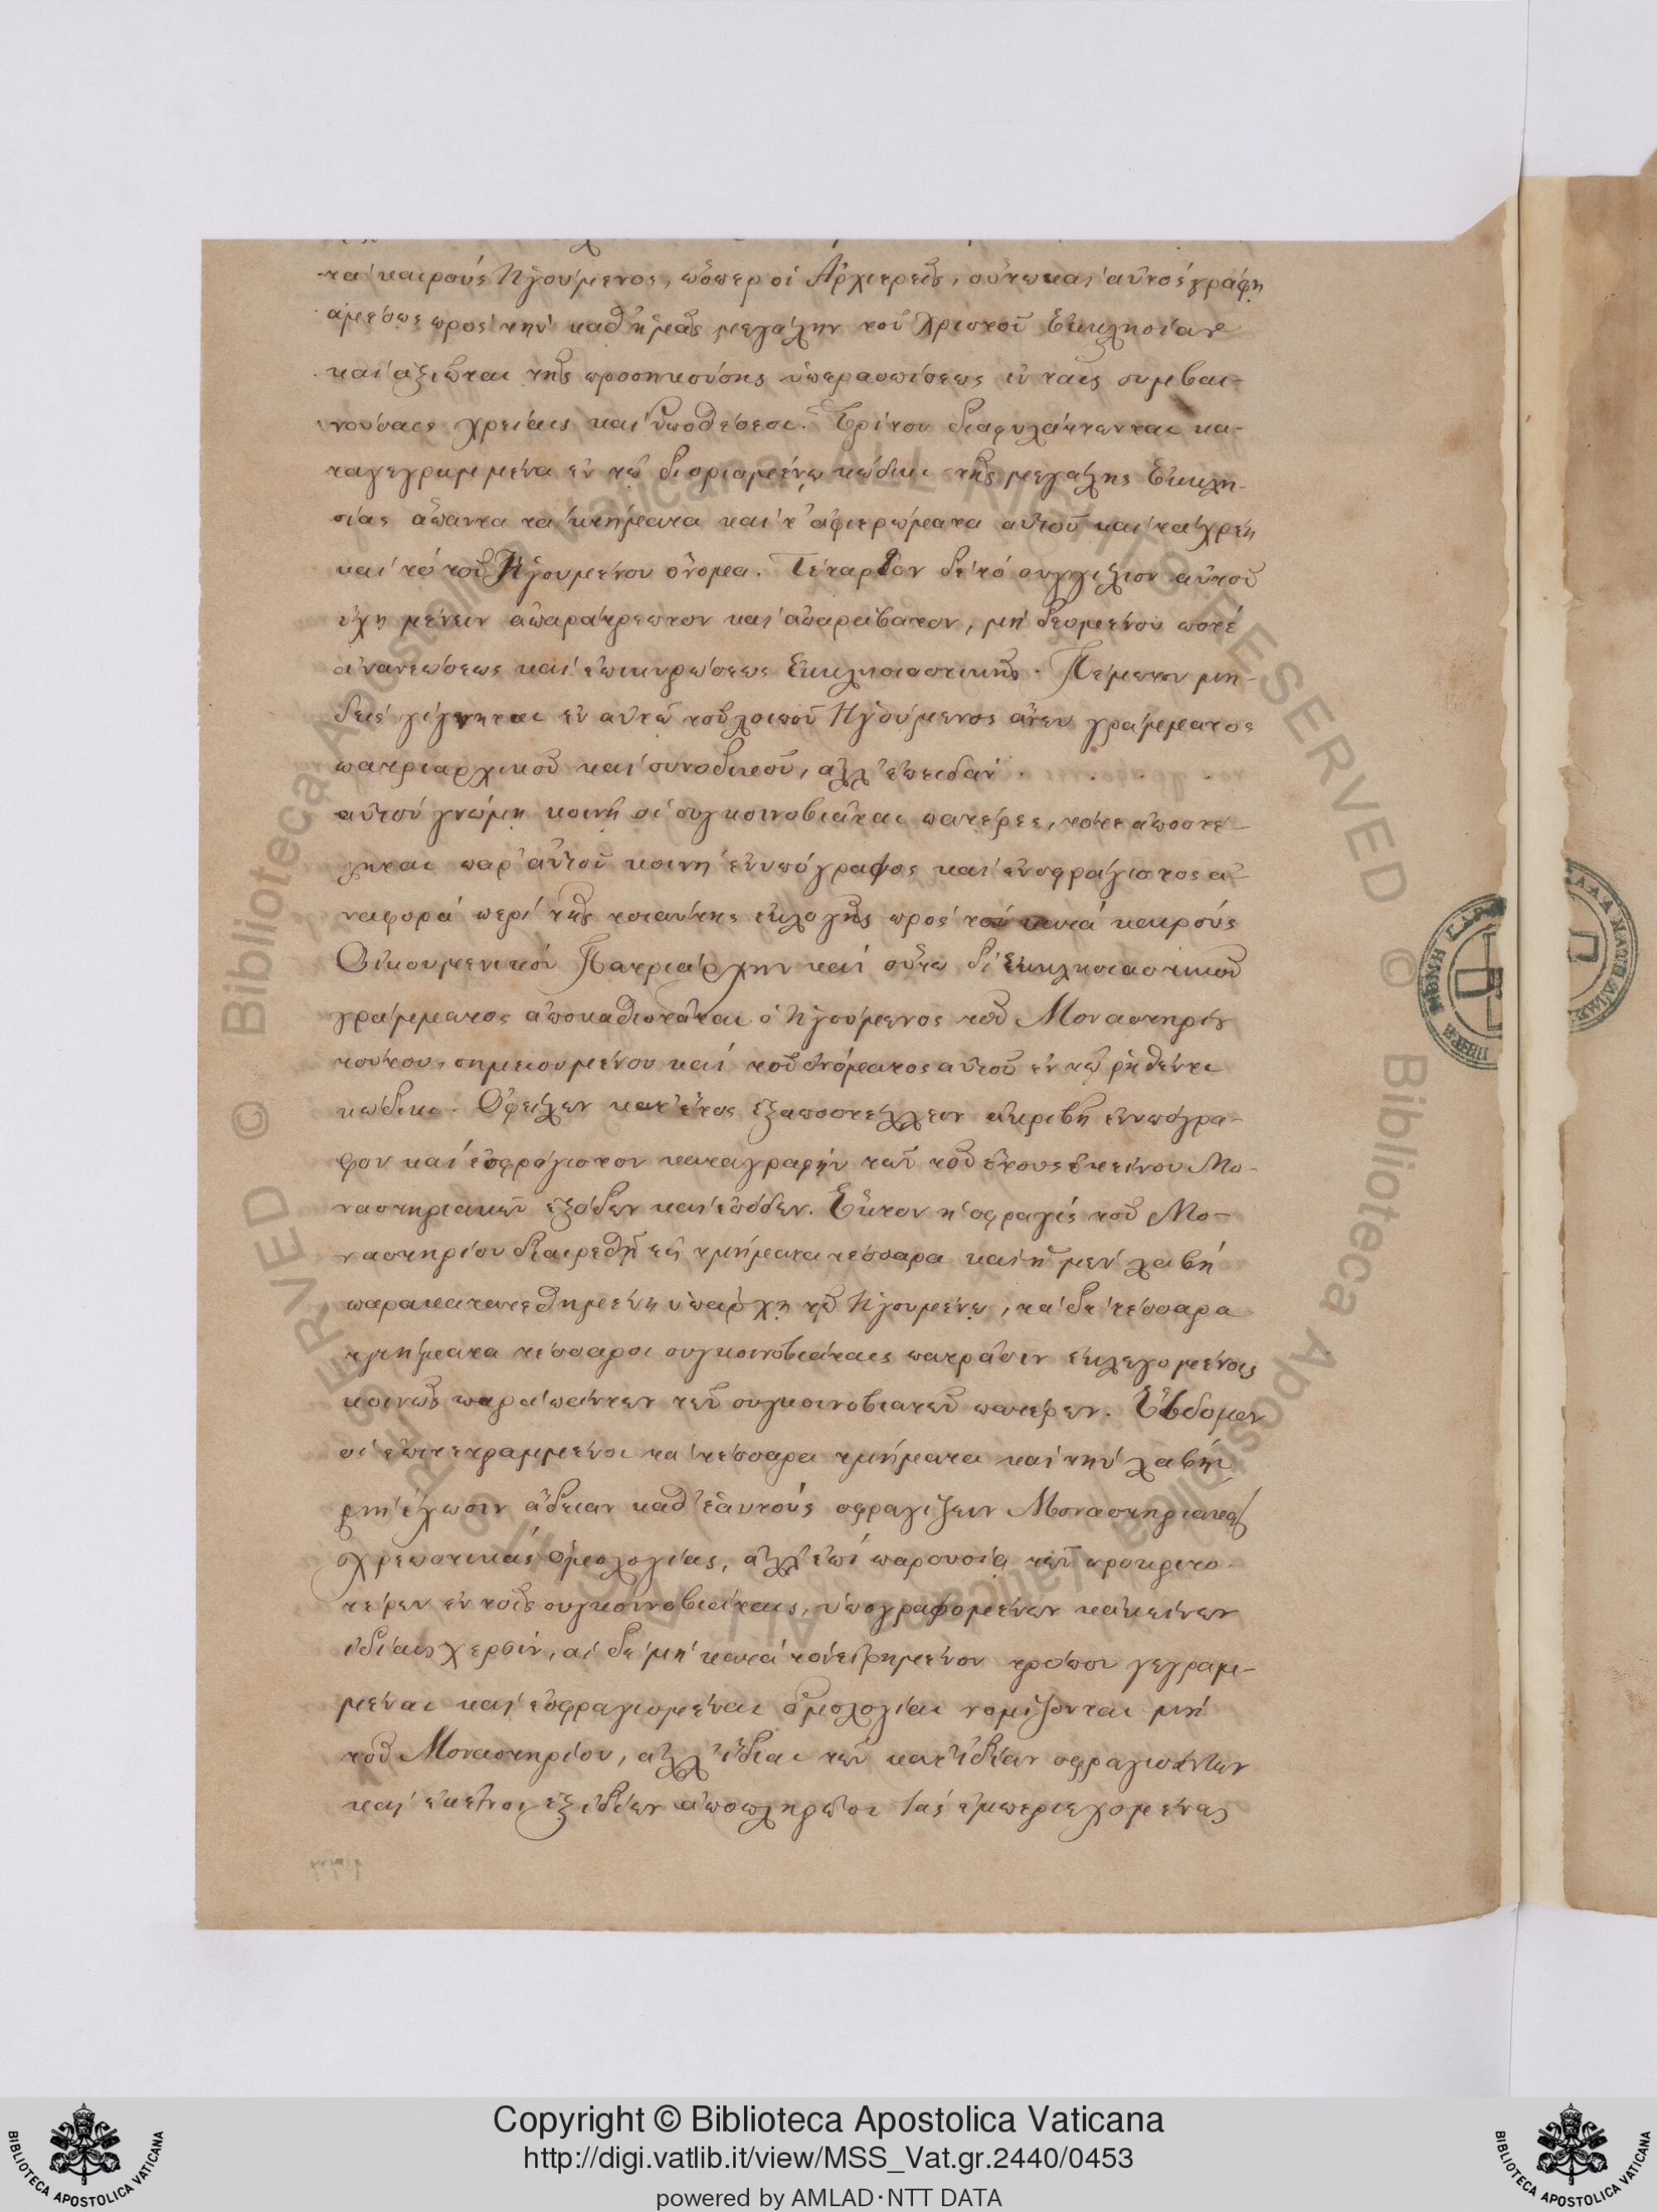 τὰ καιροὺς Ἡγούμενος, ὥσπερ οἱ Ἀρχιερεῖς, οὕτω καὶ αὐτὸς γράφῃ
ἀμέσως πρὸς τὴν καθ' ἡμᾶς μεγάλην τοῦ Χριστοῦ Ἐκκλησίαν
καὶ ἀξιῶται τῆς προσηκούσης ὑπερασπίσεως ἐν ταῖς συμβαι-
νούσαις χρείαις καὶ ὑποθέσεσι. Τρίτον διαφυλάττωνται κα-
ταγεγραμμένα ἐν τῷ διορισμένῳ κώδικι τῆς μεγάλης Ἐκκλη-
σίας ἅπαντα τὰ κτήματα καὶ τ' ἀφιερώματα αὐτοῦ καὶ τὰ χρέη
καὶ τὸ τοῦ Ἡγουμένου ὄνομα. Τέταρτον δὲ τὸ συγγίλιον αὐτοῦ
ἔχῃ μένειν ἀπαράτρεπτον καὶ ἀπαράβατον, μὴ δεομένου ποτὲ
ἀνανεώσεως καὶ ἐπικυρώσεως Ἐκκλησιαστικῆς. Πέμπτον μη-
δεὶς γίγνηται ἐν αὐτῷ τοῦ λοιποῦ Ἡγούμενος ἄνευ γράμματος
πατριαρχικοῦ καὶ συνοδικοῦ, ἀλλ' ἐπειδὰν . . . .
αὐτὸν γνώμῃ κοινῇ οἱ συγκοινοβιᾶται πατέρες, τότε ἀποστέ-
ληται παρ' αὐτοῦ κοινὴ ἐνυπόγραφος καὶ ἐνσφράγιστος ἀ-
ναφορὰ περὶ τῆς τοιαύτης ἐκλογῆς πρὸς τὸν κατὰ καιροὺς
Οἰκουμενικὸν Πατριάρχην καὶ οὕτω δι' ἐκκλησιαστικοῦ
γράμματος ἀποκαθιστᾶται ὁ Ἡγούμενος τοῦ Μοναστηρίου
τούτου, σημειουμένου καὶ τοῦ ὀνόματος αὐτοῦ ἐν τῷ ῥηθέντι
κώδικι. Ὀφείλων κατ' ἔτος ἐξαποστέλλειν ἀκριβῆ ἐνυπόγρα-
φον καὶ ἐσφράγιστον καταγραφὴν τῶν τοῦ ἔτους ἐκείνου Μο-
ναστηριακῶν ἐξόδων καὶ ἐσόδων. Ἕκτον ἡ σφραγὶς τοῦ Μο-
ναστηρίου διαιρεθῇ εἰς τμήματα τέσσαρα καὶ ἡ μὲν λαβὴ
παρακατατεθημένη ὑπάρχῃ τῷ Ἡγουμένῳ, τὰ δὲ τέσσαρα
τμήματα τέσσαρσι συγκοινοβιάταις πατράσιν ἐκλεγομένοις
κοινῶς παρὰ πάντων τῶν συγκοινοβιατῶν πατέρων. Ἕβδομον
οἱ ἐπιτετραμμένοι τὰ τέσσαρα τμήματα καὶ τὴν λαβὴν
μὴ ἔχωσιν ἄδειαν καθ' ἑαυτοὺς σφραγίζειν Μοναστηριακὰς
χρεωστικὰς ὁμολογίας, ἀλλ' ἐπὶ παρουσίᾳ τῶν προκριτο-
τέρων ἐν τοῖς συγκοινοβιάταις, ὑπογραφομένων κἀκείνων
ἰδίαις χερσίν, αἱ δὲ μὴ κατὰ τὸν εἰρημένον τρόπον γεγραμ-
μέναι καὶ ἐσφραγισμέναι ὁμολογίαι νομίζονται μὴ
τοῦ Μοναστηρίου, ἀλλ' ἴδιαι τῶν κατ' ἰδίαν σφραγισάντων
καὶ ἐκεῖνοι ἐξ ἰδίων ἀποπληρῶσι τὰς ἐμπεριεχομένας
Copyright © Biblioteca Apostolica Vaticana
http://digi.vatlib.it/view/MSS_Vat.gr.2440/0453
powered by AMLAD·NTT DATA
BIBLIOTECA APOSTOLICA VATICANA
BIBLIOTECA APOSTOLICA VATICANA